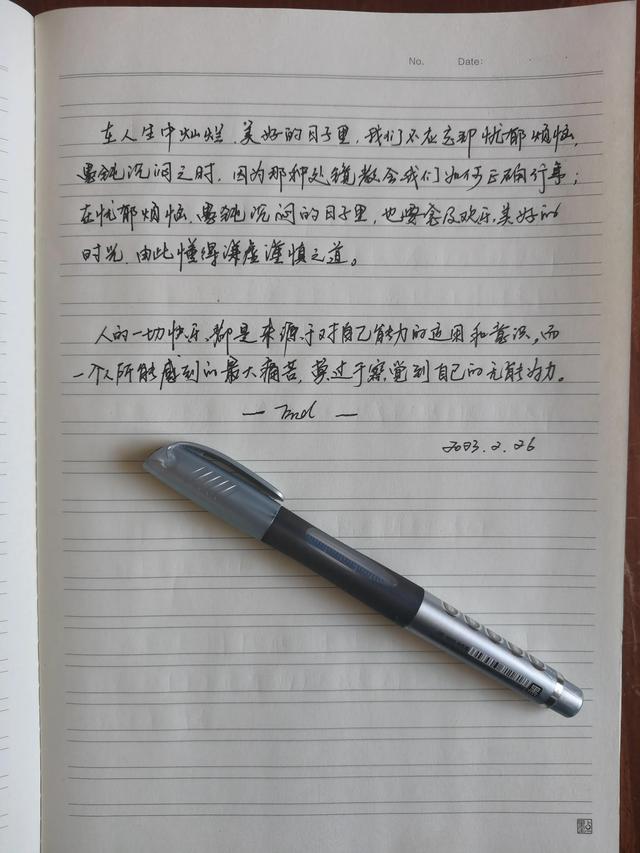 No. Date:
在人生中灿烂、美好的日子里，我们不应忘却忧郁烦恼、
愚钝沉闷之时，因为那种处境教会我们如何正确行事；
在忧郁烦恼、愚钝沉闷的日子里，也要念及欢乐、美好的
时光，由此懂得谦虚谨慎之道。
人的一切快乐，都是来源于对自己能力的运用和意识，而
一个人所能感到的最大痛苦，莫过于察觉到自己的无能为力。
— End —
2023.2.26